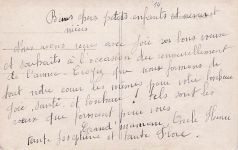 Biens chers petits enfants et arrière
nièces
Nous avons reçu avec joie vos bons vœux
et souhaits à l'occasion du renouvellement
de l'année. Croyez que nous formons de
tout notre cœur les mêmes pour votre bonheur
joie, santé, et bonheur ! Tels sont les
vœux que forment pour vous
Grand'maman, Oncle
tante Joséphine et tante Flore.